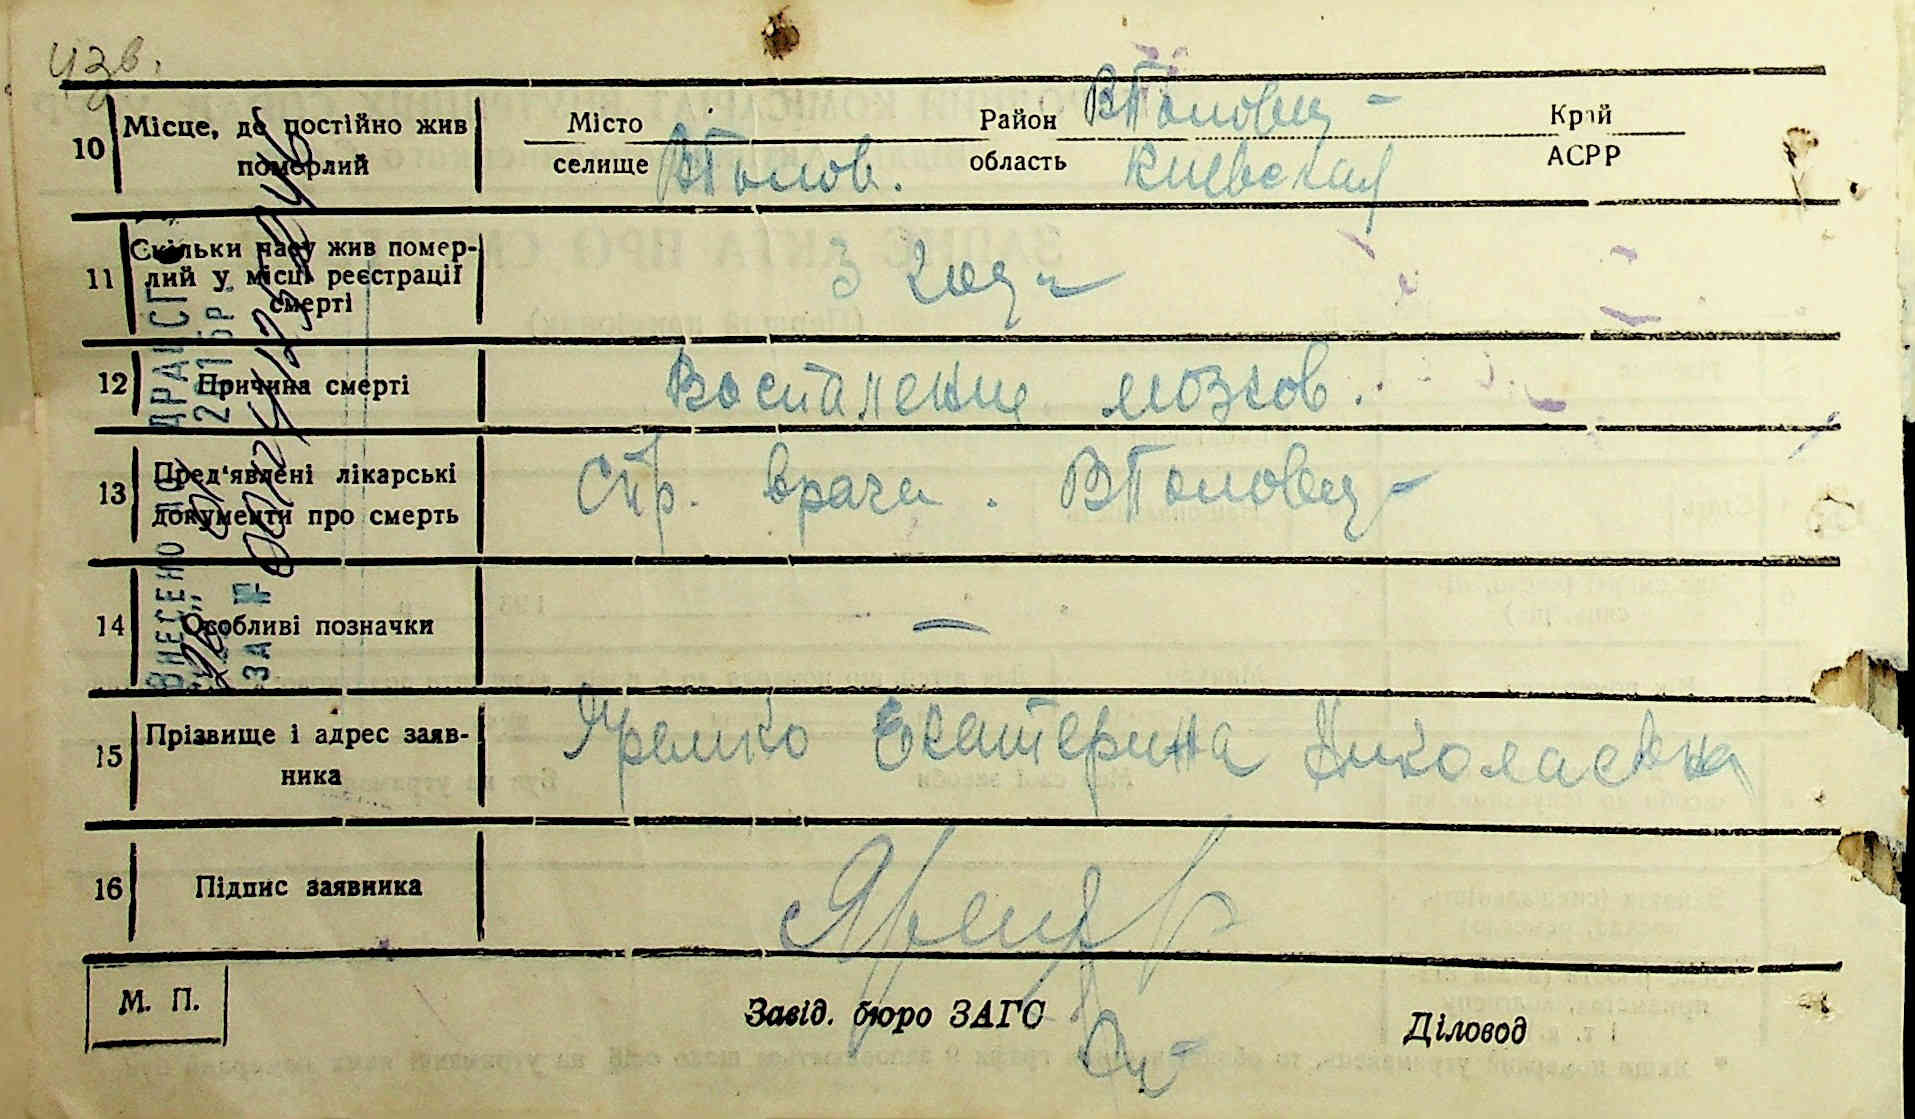 изв.
10 Місце, де постійно жив померлий
Місто
селище ВПолов.
Район ВПоловец-
область Киевская
Край
АСРР
11 Скільки часу жив помер-
лий у місці реєстрації
смерті
3 года
12 Причина смерті
Воспаление мозгов.
13 Пред'явлені лікарські
документи про смерть
Спр. врача. ВПоловец-
14 Особливі позначки
—
15 Прізвище і адрес заяв-
ника
Яремко Екатерина Николаевна
16 Підпис заявника
М. П.
Завід. бюро ЗАГС
Діловод
ВНЕСЕНО ДО ДРАЦСГ
201 БР.
ЗА №